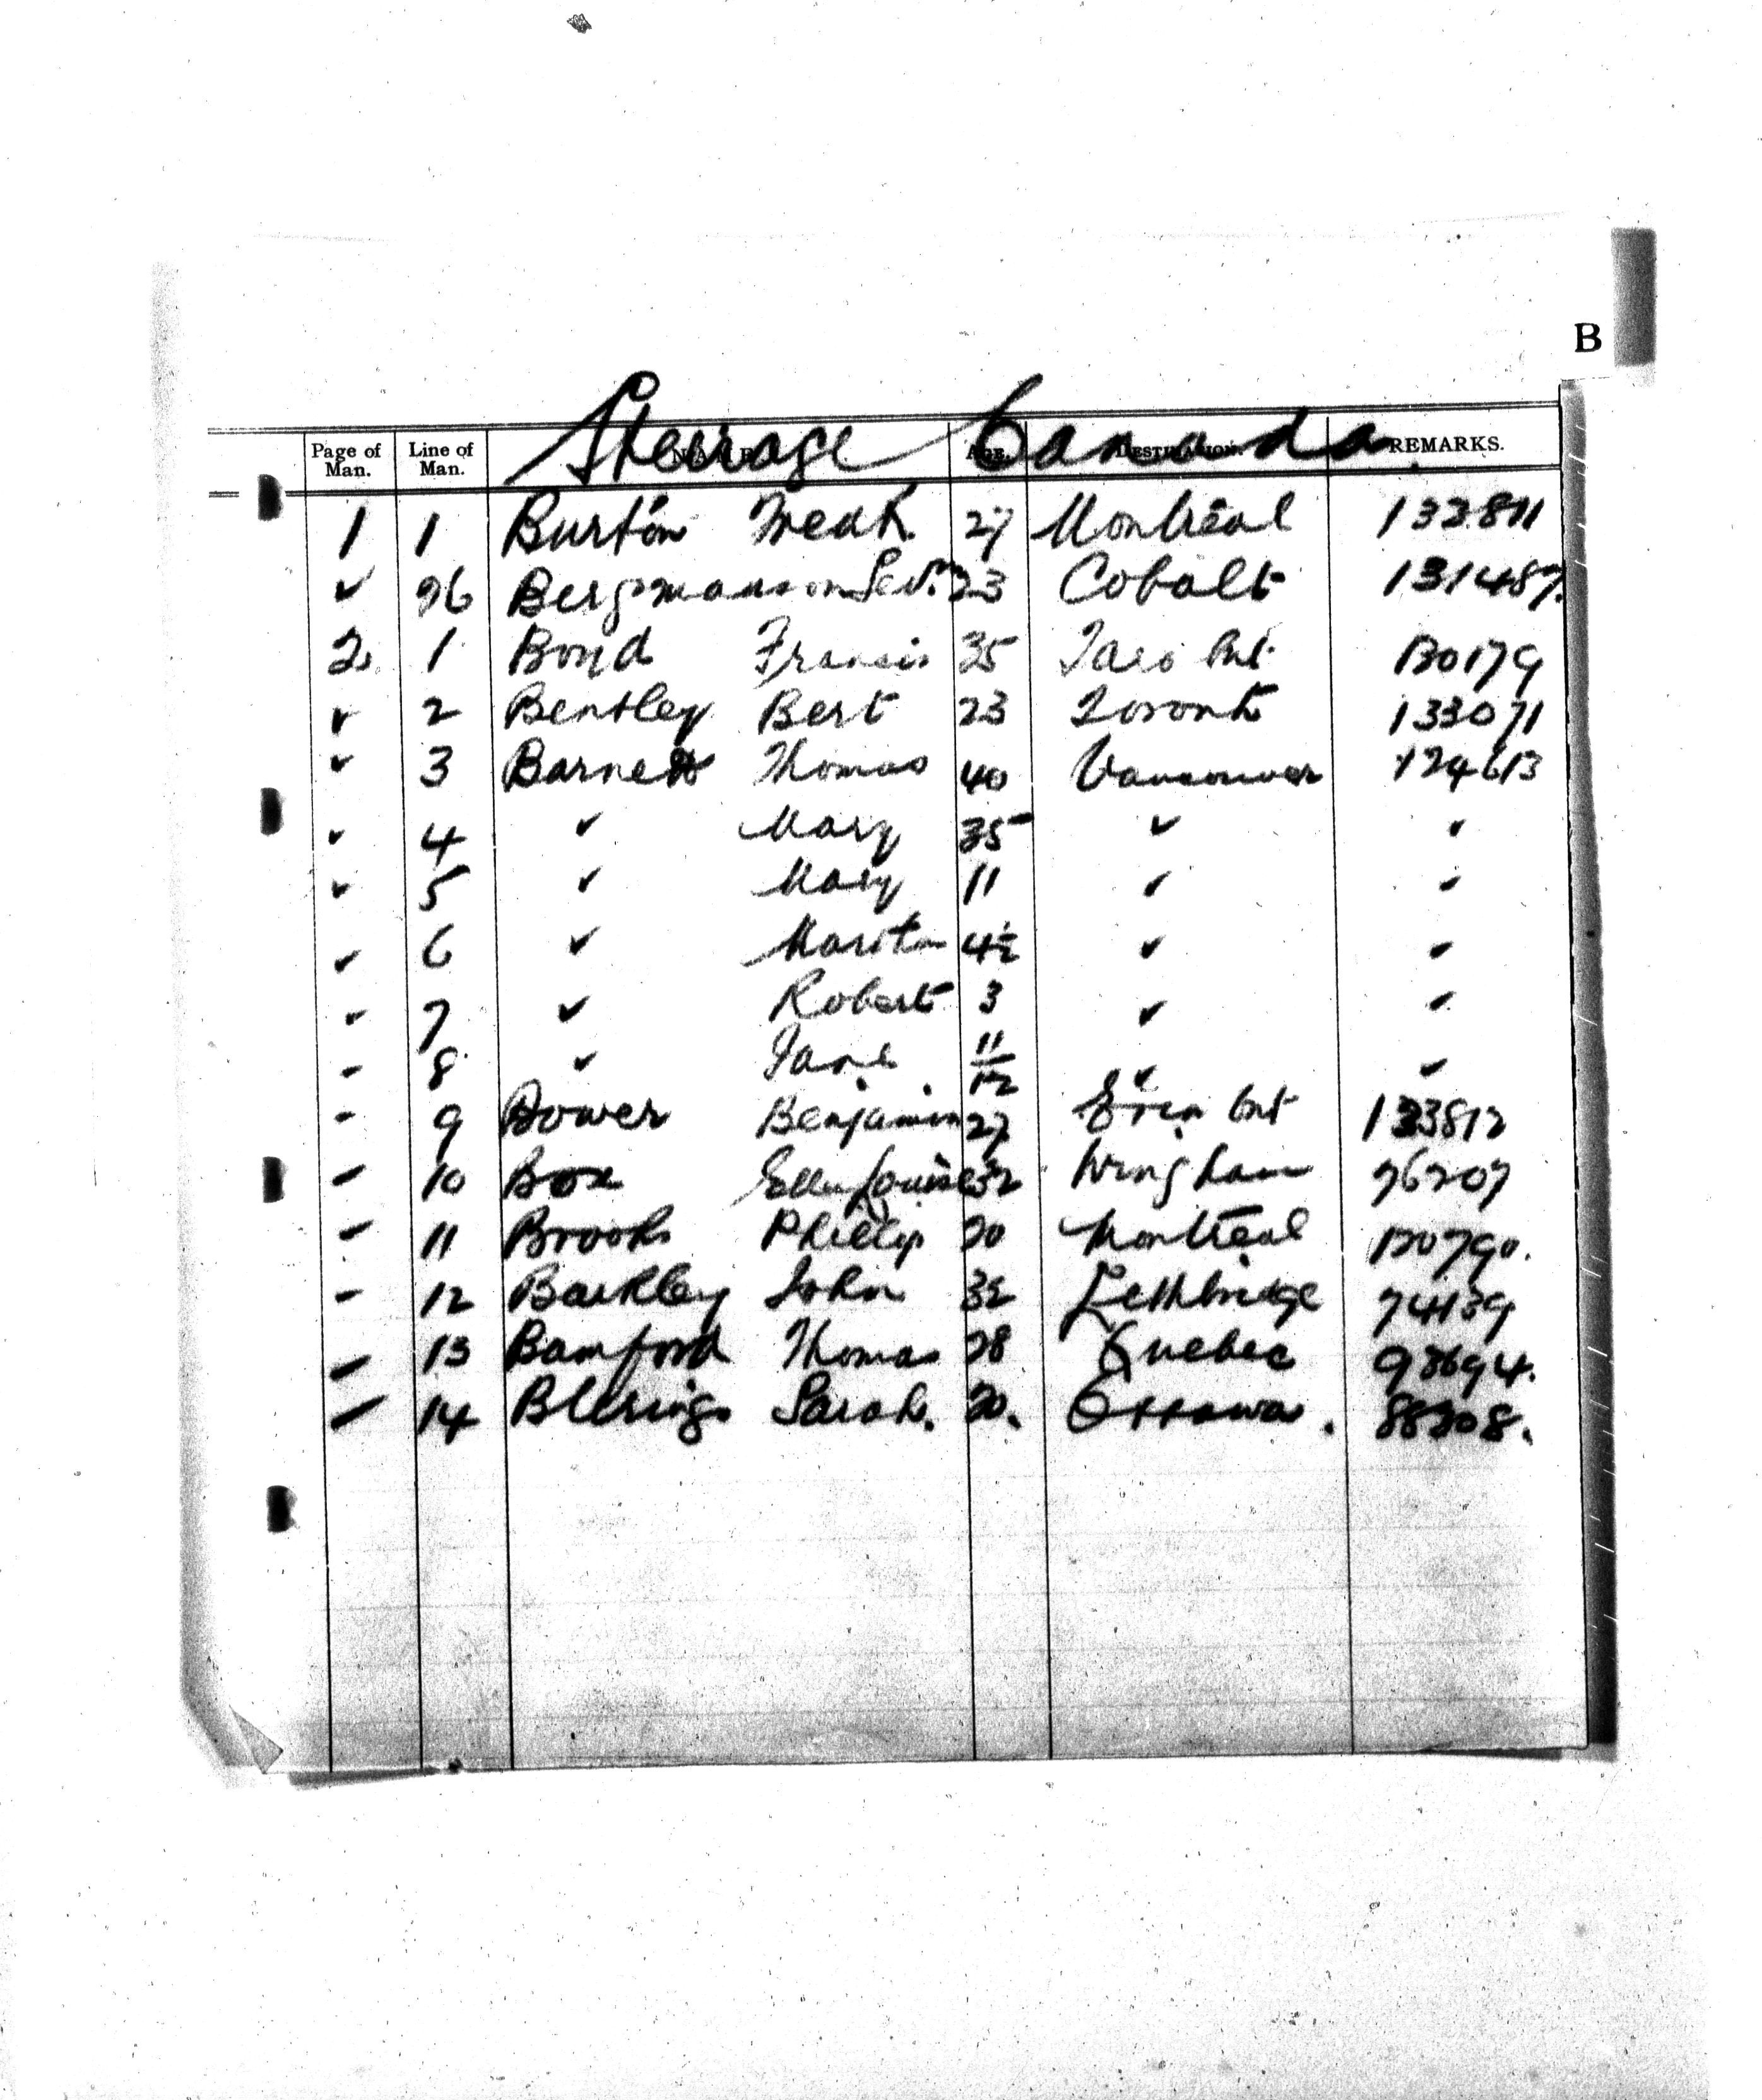 B
Steerage Canada
Page of Man. Line of Man. NAME AGE. DESTINATION. REMARKS.
1 1 Burton 27 Montreal 133811
✓ 26 Bergmanson 23 Cobalt 131487.
2. 1 Boyd Francis 35 Ont. 130179
✓ 2 Bentley Bert 23 Toronto 133071
✓ 3 Barnett Thomas 40 Vancouver 124613
✓ 4 ✓ Mary 35 ✓ ✓
✓ 5 ✓ Mary 11 ✓ ✓
✓ 6 ✓ 4½ ✓ ✓
✓ 7 ✓ Robert 3 ✓ ✓
- 8 ✓ Jane 11/12 ✓ ✓
- 9 Bower Benjamin 27 Erin Ont 133812
- 10 Box Ellen Louise 32 Wingham 76207
- 11 Brooks Phillip 20 Montreal 120790.
- 12 Barkley John 32 Lethbridge 74139
- 13 Bamford Thomas 28 Quebec 98694.
- 14 Sarah. 20. Ottawa. 88208.